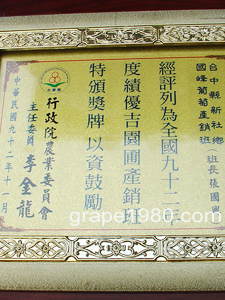 台中縣新社鄉
國峰葡萄產銷班(班長張國興
經評列為全國九十二年
度績優吉園圃產銷班
特頒獎牌以資鼓勵
行政院農業委員會
主任委員 李金龍
中華民國九十二年十一月
grape1980.com